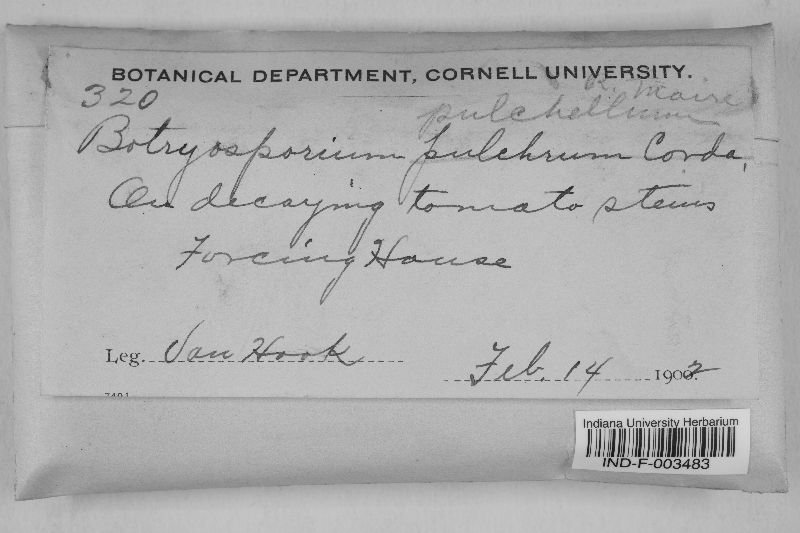 BOTANICAL DEPARTMENT, CORNELL UNIVERSITY.
320
R. Maire
pulchellum
Botryosporium pulchrum Corda,
On decaying tomato stems
Forcing House
Leg. Van Hook
Feb. 14 1902
Indiana University Herbarium
IND-F-003483